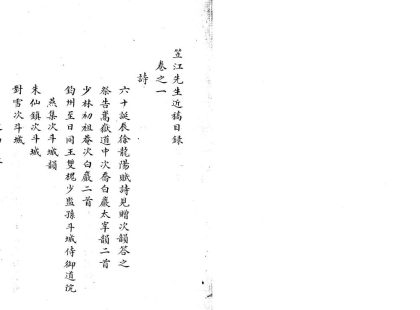 笠江先生近稿目錄
卷之一
詩
六十誕辰徐龍陽賦詩見贈次韻答之
祭告嵩嶽道中次喬白巖太宰韻二首
少林初祖菴次白巖二首
鈞州至日同王雙槐少監孫斗城侍御道院
燕集次斗城韻
朱仙鎮次斗城
對雪次斗城